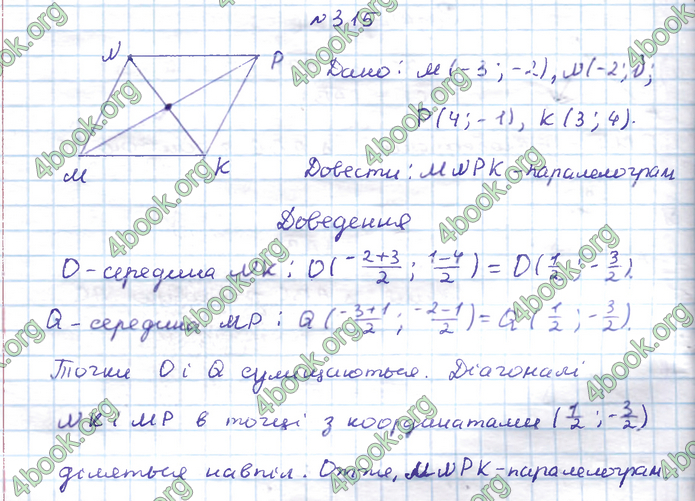 N 3.15
N P
Дано: M(-3; -2), N(-2; 1);
P(4; -1), K(3; 4).
M K
Довести: MNPK - паралелограм
Доведення
O - середина NK; O(-2+3/2; 1-4/2) = O(1/2; -3/2).
Q - середина MP; Q(-3+1/2; -2-1/2) = Q(1/2; -3/2).
Точки O і Q суміщаються. Діагоналі
NK і MP в точці з координатами (1/2; -3/2)
діляться навпіл. Отже, MNPK - паралелограм
4book.org